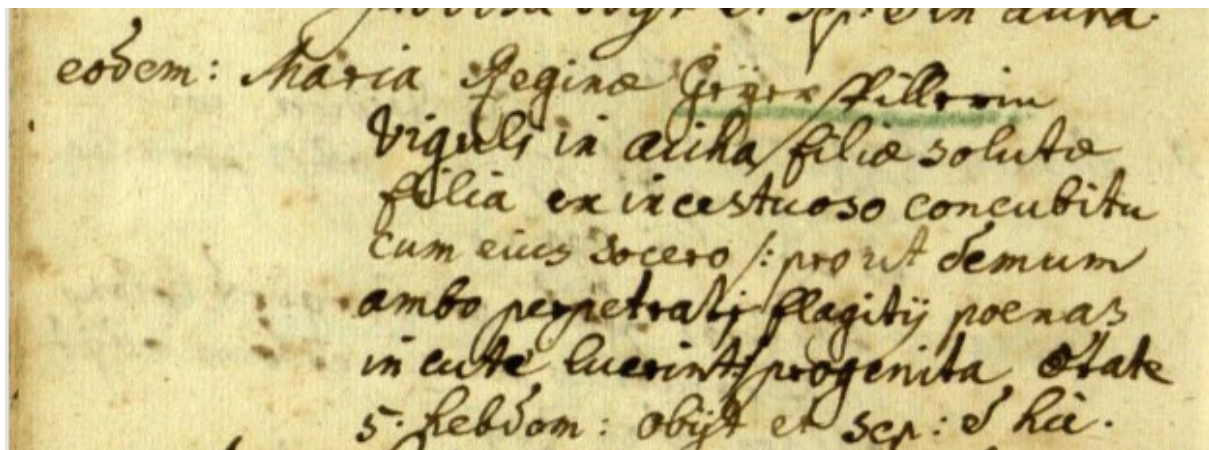 provisa obijt et sep: e in aura.
eodem: Maria Reginæ
Viguli in filiæ solutæ
filia ex incestuoso concubitu
cum eius socero /: prout demum
ambo perpetratj flagitij poenas
in cute luerint :/ progenita, ætate
5. hebdom: obijt et sep: e hic.